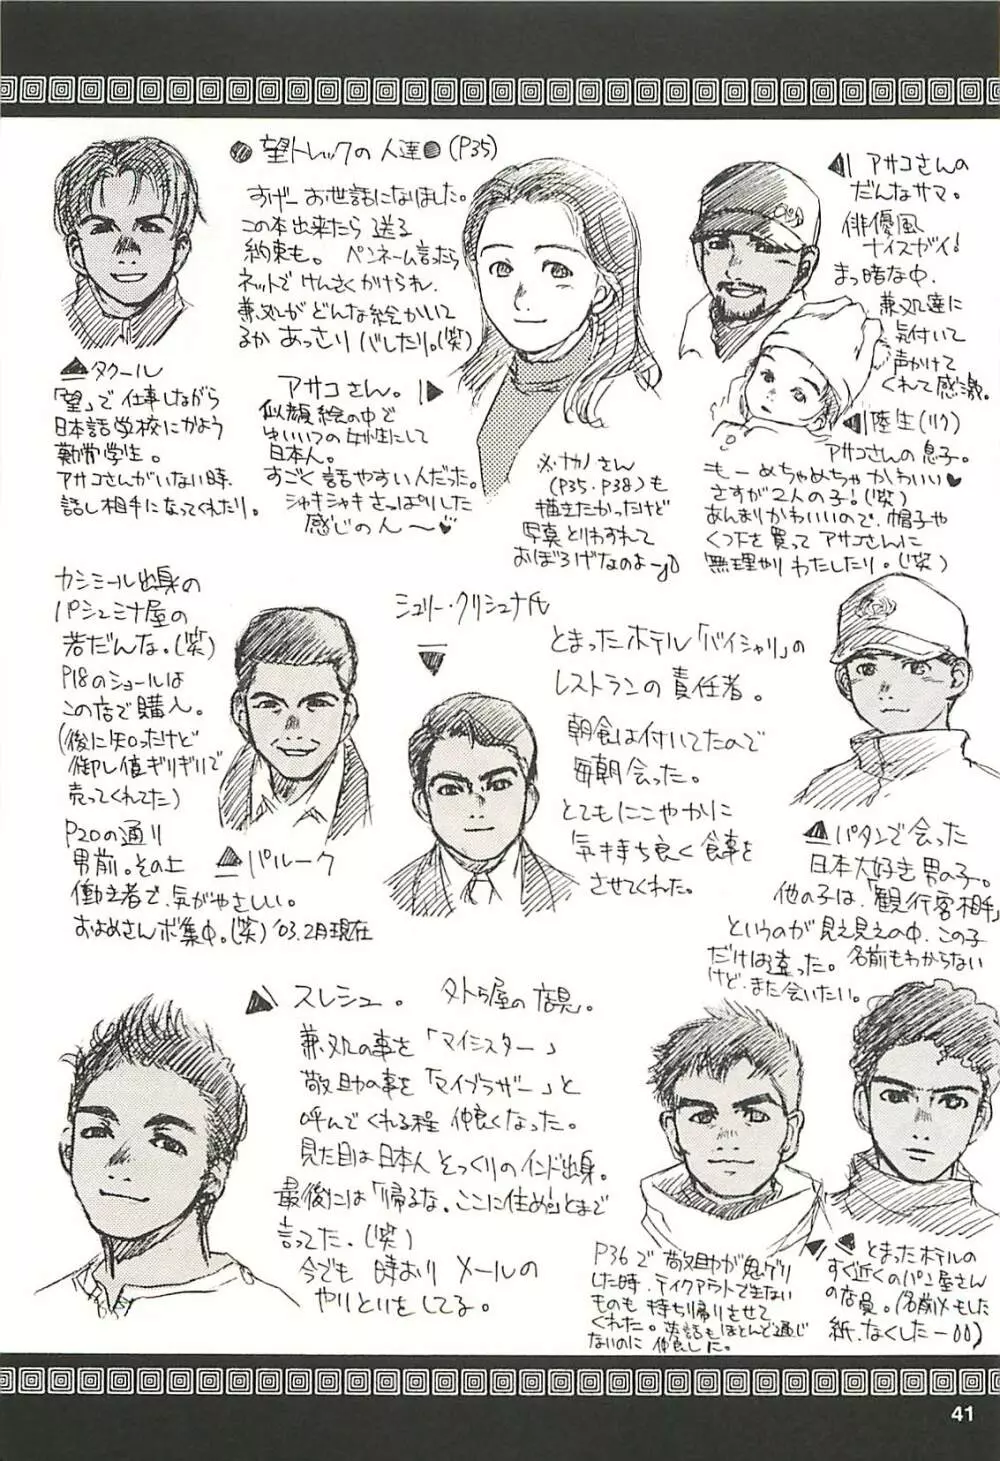 ●望トレックの人達●(P35)
すげーお世話になりました。
この本出来たら送る
約束も。ペンネーム言ったら
ネットでけんさくかけられ、
兼処がどんな絵かいて
るかあっさりバレたり。(笑)
▲タクール
「望」で仕事しながら
日本語学校にかよう
勤労学生。
アサコさんがいない時、
話し相手になってくれたり。
アサコさん。▶
似顔絵の中で
ゆいいつの女性にして
日本人。
すごく話やすい人だった。
シャキシャキさっぱりした
感じのん〜♥
※ナカノさん
(P35.P38)も
描きたかったけど
写真とりわすれて
おぼろげなのよー
◀アサコさんの
だんなサマ。
俳優風
ナイスガイ!
まっ暗な中、
兼処達に
気付いて
声かけて
くれて感激。
◀陸生(リク)
アサコさんの息子。
もーめちゃめちゃかわいい♥
さすが2人の子!(笑)
あんまりかわいいので、帽子や
くつ下を買ってアサコさんに
無理やりわたしたり。(笑)
カシミール出身の
パシュミナ屋の
若だんな。(笑)
P18のショールは
この店で購入。
(後に知ったけど
御し値ギリギリで
売ってくれてた)
P20の通り
男前。その上
働き者で、気がやさしい。
およめさんボ集中。(笑)'03.2月現在
▲パルーク
シュリー・クリシュナ氏
▼
とまったホテル「バイシャリ」の
レストランの責任者。
朝食は付いてたので
毎朝会った。
とてもにこやかに
気持ち良く食事を
させてくれた。
▲パタンで会った
日本大好き男の子。
他の子は、「観行客相手」
というのが見え見えの中、この子
だけは違った。名前もわからない
けど、また会いたい。
▲スレシュ。タトゥ屋の店員。
兼処の事を「マイシスター」
敬助の事を「マイブラザー」と
呼んでくれる程仲良くなった。
見た目は日本人そっくりのインド出身。
最後には「帰るな。ここに住め」とまで
言ってた。(笑)
今でも時おりメールの
やりといをしてる。
P36で敬助が鬼ゲリ
した時、テイクアウトで主ない
ものも持ち帰りさせて
くれた。英語もほとんど通じ
ないのに仲良した。
とまったホテルの
すぐ近くのパン屋さん
の店員。(名前メモした
紙、なくしたー)
41